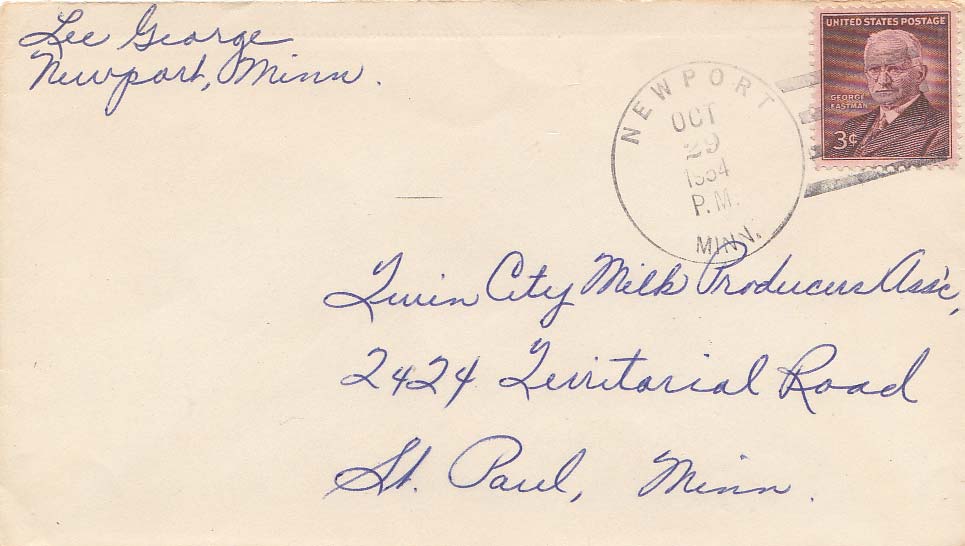 Lee George
Newport, Minn.
UNITED STATES POSTAGE
GEORGE
EASTMAN
3¢
NEWPORT
OCT
29
1954
P.M.
MINN.
Twin City Milk Producers Ass'c,
2424 Territorial Road
St. Paul, Minn.